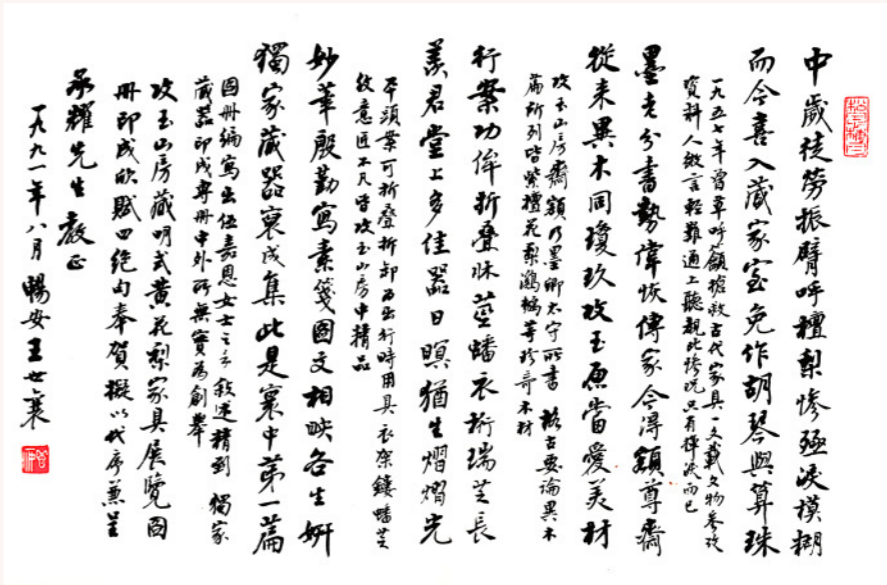 中歲徒勞振臂呼檀梨慘殛淚模糊
而今喜入藏家室免作胡琴與算珠
一九五七年曾草呼籲搶救古代家具一文載文物參攷
資料人微言輕難通上聽親此慘況只有揮淚而已
墨老分書勢偉恢傳家今得額尊齋
從來異木同瓊玖攻玉原當愛美材
攻玉山房齋額乃墨卿太守所書 格古要論異木
篇所列皆紫檀花梨鸂鶒等珍奇木材
行案功侔折疊牀莖蟠衣桁瑞芝長
羨君堂上多佳器日暝猶生熠熠光
平頭案可折疊拆卸為出行時用具 衣架鏤蟠芝
紋意匠不凡皆攻玉山房中精品
妙筆殷勤寫素箋圖文相映各生妍
獨家藏器裒成集此是寰中第一篇
圖冊編寫出伍嘉恩女士之手敘述精到 獨家
藏器印成專冊中外所無實為創舉
攻玉山房藏明式黃花梨家具展覽圖
冊印成欣賦四絕句奉賀擬以代序兼呈
承耀先生 教正
一九九一年八月 暢安王世襄